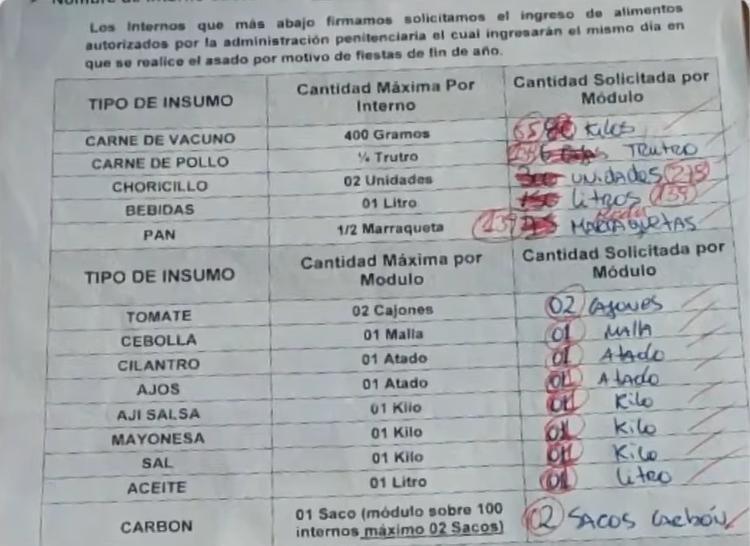 Los Internos que más abajo firmamos solicitamos el ingreso de alimentos
autorizados por la administración penitenciaria el cual ingresarán el mismo día en
que se realice el asado por motivo de fiestas de fin de año.
TIPO DE INSUMO Cantidad Máxima Por Interno Cantidad Solicitada por Módulo
CARNE DE VACUNO 400 Gramos Kilos
CARNE DE POLLO ¼ Trutro Trutro
CHORICILLO 02 Unidades UNidades 278
BEBIDAS 01 Litro litros 139
PAN 1/2 Marraqueta 139 MARRAQUETAS
TIPO DE INSUMO Cantidad Máxima por Modulo Cantidad Solicitada por Módulo
TOMATE 02 Cajones 02 Cajones
CEBOLLA 01 Malla 01 Malla
CILANTRO 01 Atado 01 Atado
AJOS 01 Atado 01 Atado
AJI SALSA 01 Kilo 01 Kilo
MAYONESA 01 Kilo 01 Kilo
SAL 01 Kilo 01 Kilo
ACEITE 01 Litro 01 litro
CARBON 01 Saco (módulo sobre 100 internos máximo 02 Sacos) 02 SACOS Carbón